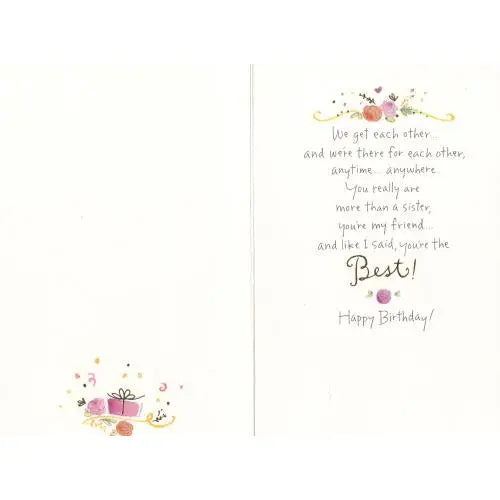 We get each other...
and we're there for each other,
anytime... anywhere.
You really are
more than a sister,
you're my friend...
and like I said, you're the
Best!
Happy Birthday!